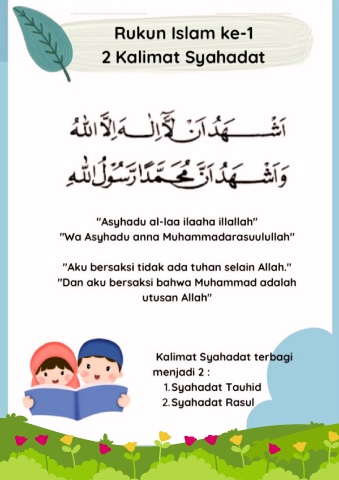 Rukun Islam ke-1
2 Kalimat Syahadat
اَشْهَدُ اَنْ لَّآ اِلٰهَ اِلَّا اللهُ
وَاَشْهَدُ اَنَّ مُحَمَّدًا رَّسُوْلُ اللهِ
"Asyhadu al-laa ilaaha illallah"
"Wa Asyhadu anna Muhammadarasuulullah"
"Aku bersaksi tidak ada tuhan selain Allah."
"Dan aku bersaksi bahwa Muhammad adalah
utusan Allah"
Kalimat Syahadat terbagi
menjadi 2 :
1. Syahadat Tauhid
2. Syahadat Rasul